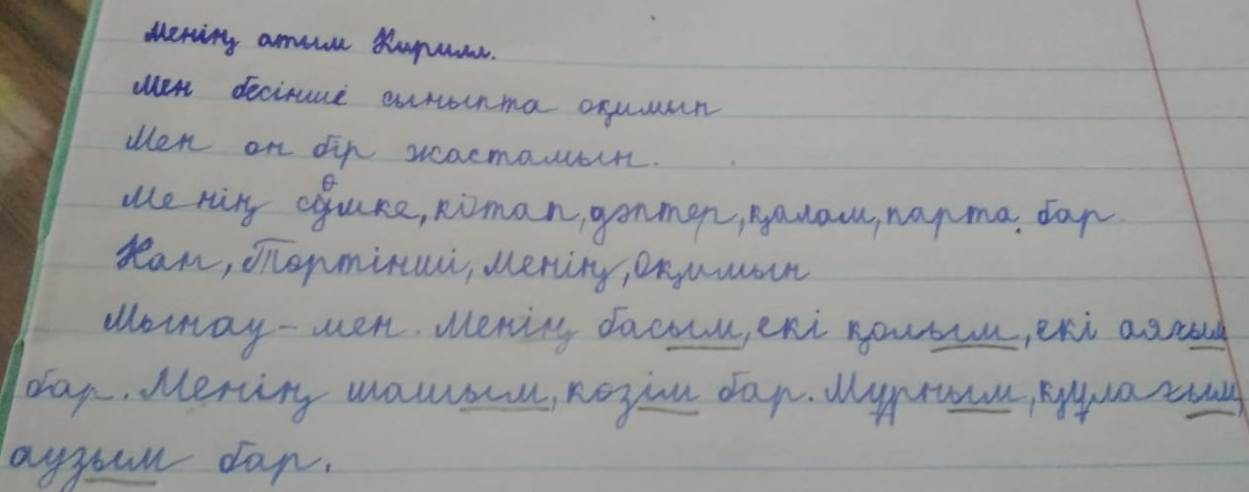 Менің атым Кирилл.
Мен бесінші сыныпта оқимын
Мен он бір жастамын.
Менің сөмке, кітап, дәптер, қалам, парта. бар
Кап, Төртінші, менің, Оқимын
Мынау - мен. Менің басым, екі қолым, екі аяғым
бар. Менің шашым, көзім бар. Мұрным, құлағым,
аузым бар.